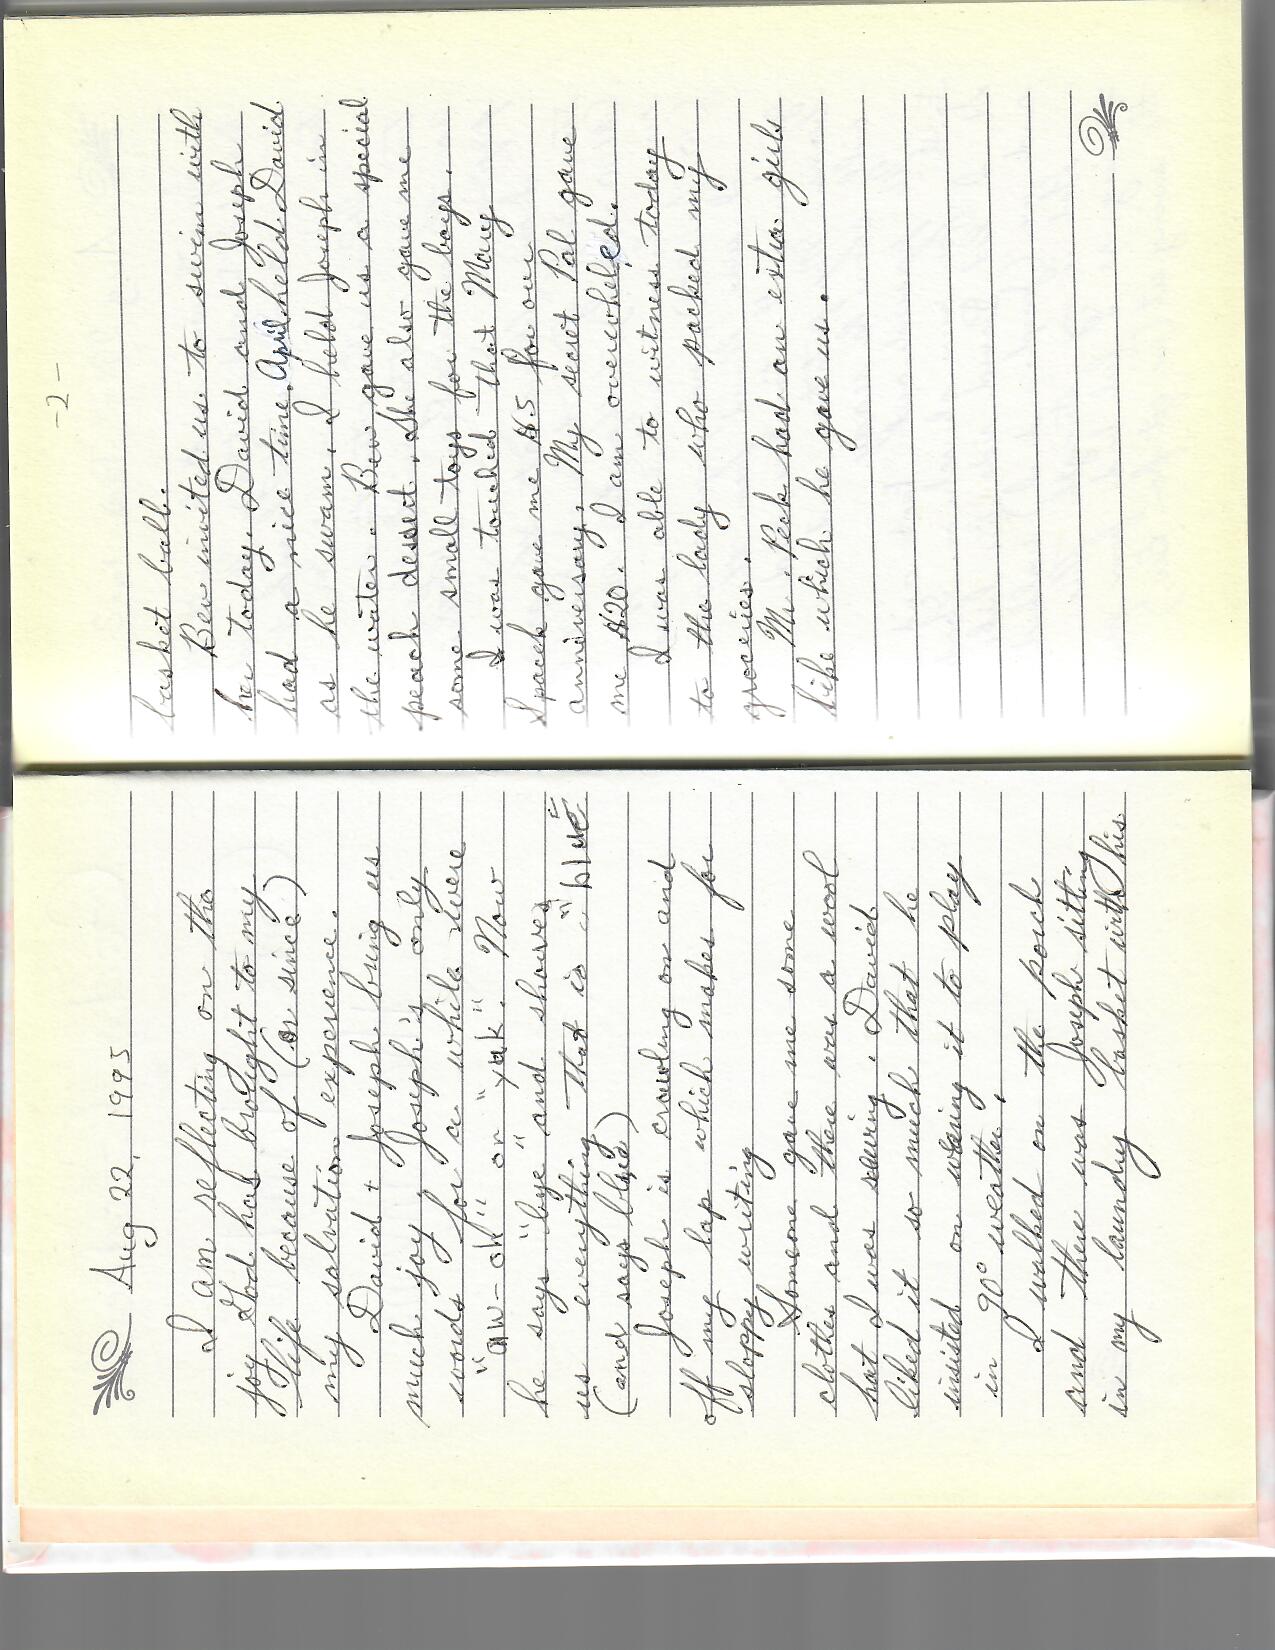 Aug 22, 1995
I am reflecting on the
joy God has brought to my
life because of (or since)
my salvation experience.
David + Joseph bring us
much joy. Joseph's only
words for a while were
"aw-oh" or "yuk". Now
he says "bye" and shows
us everything that is "blue"
(and says blue)
Joseph is crawling on and
off my lap which makes for
sloppy writing
Someone gave me some
clothes and there was a wool
hat I was saving. David
liked it so much that he
insisted on wearing it to play
in 90° weather.
I walked on the porch
and there was Joseph sitting
in my laundry basket with his
-2-
basket ball.
Bev invited us to swim with
her today. David and Joseph
had a nice time. April held David
as he swam. I held Joseph in
the water. Bev gave us a special
peach dessert. She also gave me
some small toys for the boys.
I was touched that Mary
Spacek gave me $5 for our
anniversary. My secret Pal gave
me $20. I am overwhelmed.
I was able to witness today
to the lady who packed my
groceries.
Mr. Peck had an extra girls
bike which he gave us.